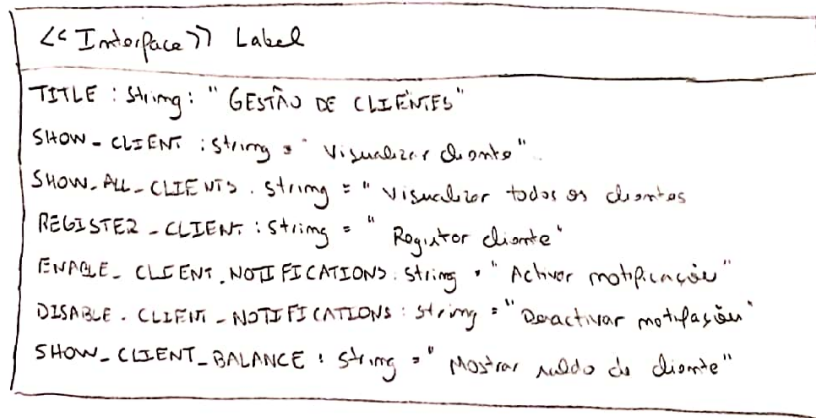 <<Interface>> Label
TITLE : String : "GESTÃO DE CLIENTES"
SHOW_CLIENT : String = "Visualizar cliente"
SHOW_ALL_CLIENTS : String = "Visualizar todos os clientes
REGISTER_CLIENT : String = "Registar cliente"
ENABLE_CLIENT_NOTIFICATIONS : String = "Activar notificações"
DISABLE_CLIENT_NOTIFICATIONS : String = "Desactivar notificações"
SHOW_CLIENT_BALANCE : String = "Mostrar saldo do cliente"